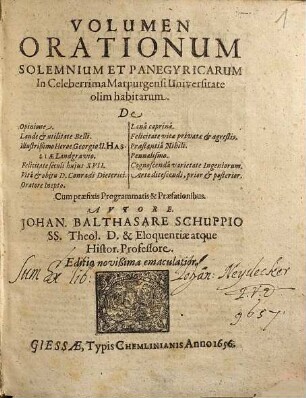 VOLUMEN
ORATIONUM
SOLEMNIUM ET PANEGYRICARUM
In Celeberrima Marpurgensi Universitate
olim habitarum.
De
Opinione.
Laude & utilitate Belli.
Illustrissimo Heroe Georgio II. HAS-
SIÆ Landgravio.
Felicitate seculi hujus XVII.
Vita & obitu D. Conradi Dieterici.
Oratore Inepto.
Lanâ caprinâ.
Felicitate vitæ privatæ & agrestis.
Præstantiâ Nihili.
Pennalismo.
Cognoscendâ varietate Ingeniorum.
Arte ditescendi, prior & posterior.
Cum præfixis Programmatis & Præfationibus.
AUTORE
JOHAN. BALTHASARE SCHUPPIO
SS. Theol. D. & Eloquentiæ atque
Histor. Professore.
Editio novissima emaculatior.
Sum Ex lib. Johan. Neydecker
9657.
GIESSÆ, Typis CHEMLINIANIS Anno 1656.